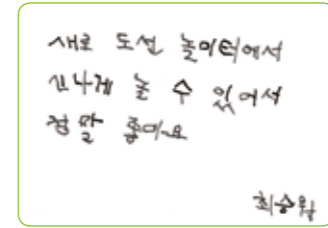 새로 도선 놀이터에서
신나게 놀 수 있어서
정말 좋아요
최승원